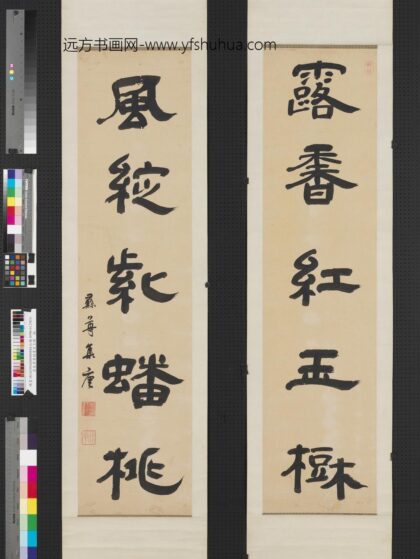 远方书画网-www.yfshuhua.com
露香紅玉樹
風綻紫蟠桃